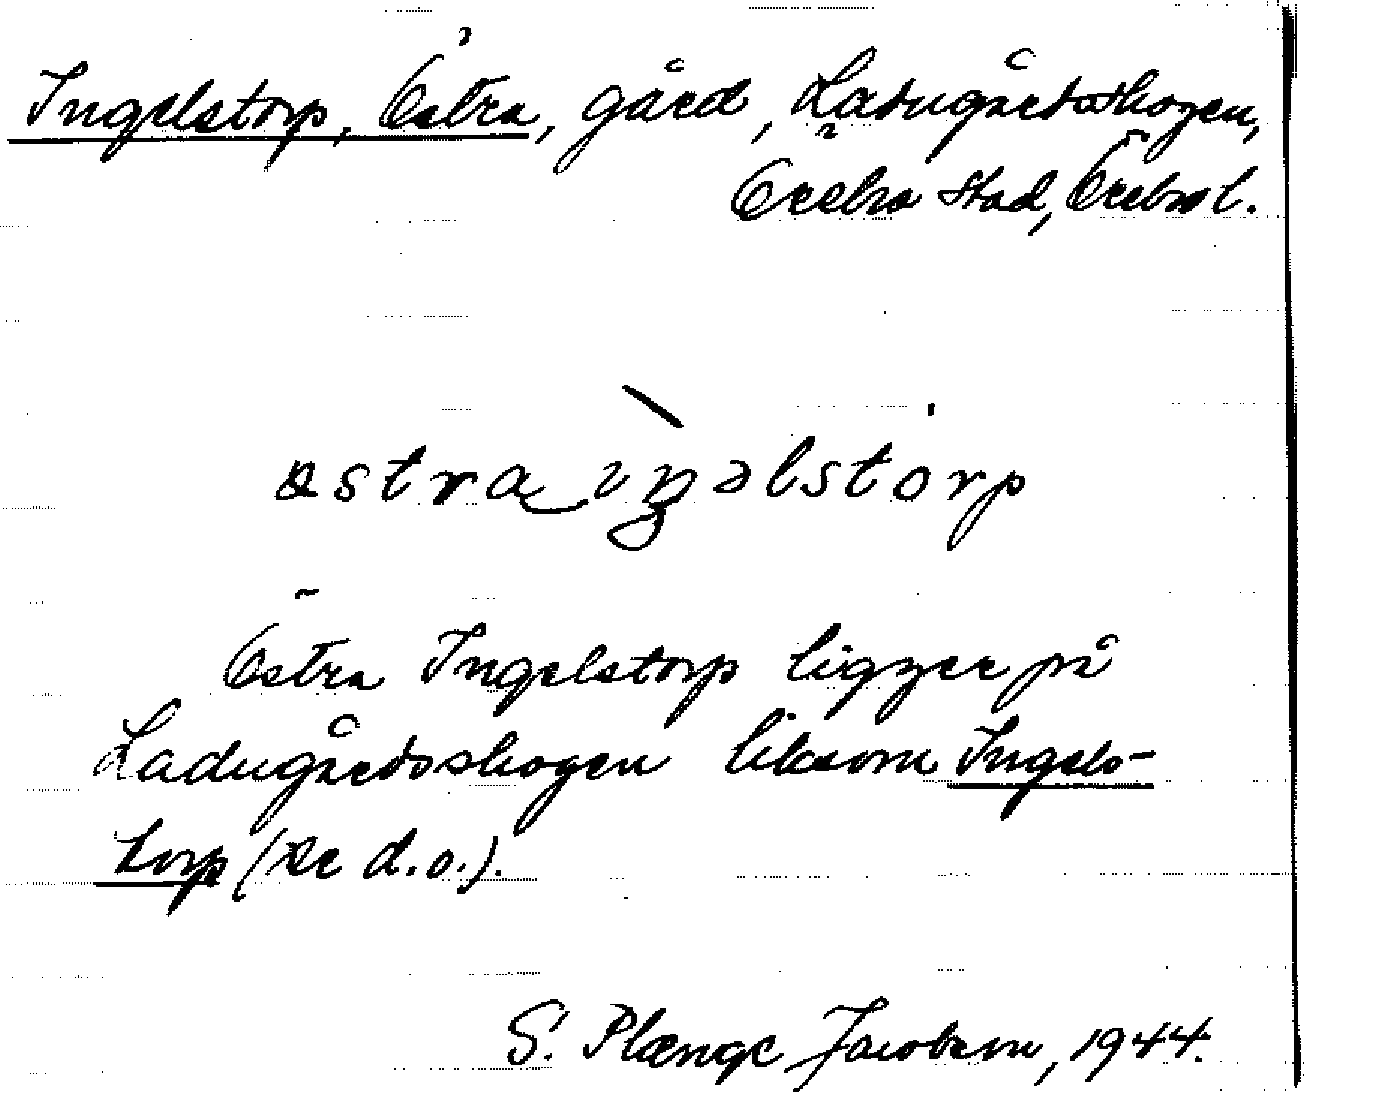 Ingelstorp, Östra, gård, Ladugårdsskogen,
Örebro stad, Örebro l.
östra ıŋəlstorp
Östra Ingelstorp ligger på
Ladugårdsskogen liksom Ingels-
torp (se d.o.).
S. Plænge Jacobson, 1944.